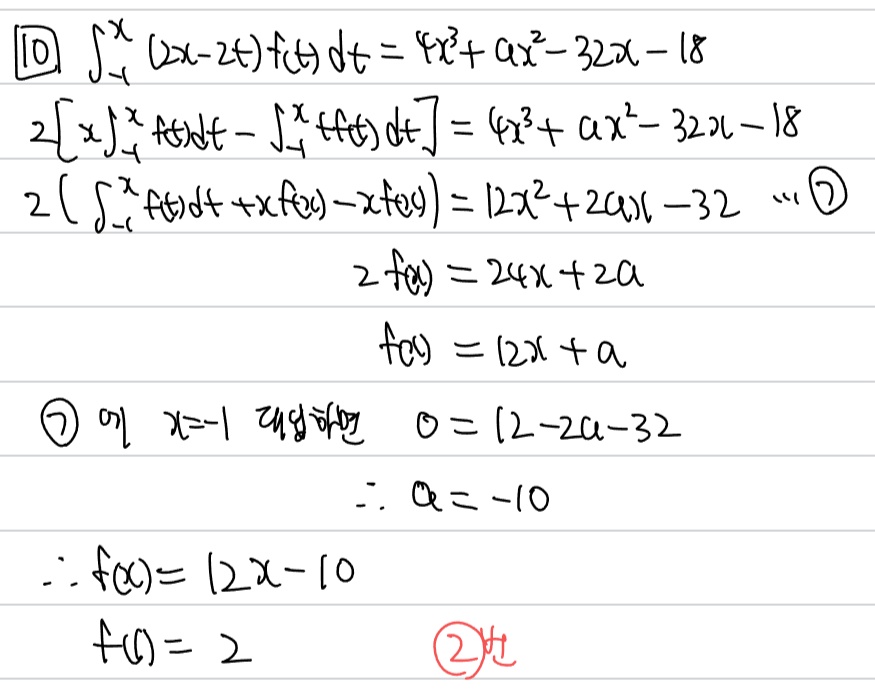 10 ∫₋₁ˣ (2x-2t)f(t)dt = 4x³+ax²-32x-18
2[x∫₋₁ˣ f(t)dt - ∫₋₁ˣ tf(t)dt] = 4x³+ax²-32x-18
2(∫₋₁ˣ f(t)dt+xf(x)-xf(x)) = 12x²+2ax-32 … ㉠
2f(x) = 24x+2a
f(x) = 12x+a
㉠에 x=-1 대입하면 0=12-2a-32
∴ a=-10
∴ f(x)=12x-10
f(1)=2 ②번